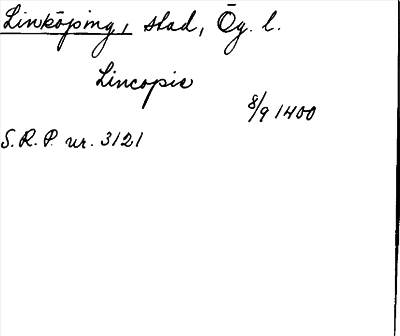 Linköping, stad, Ög. l.
Lincopie
8/9 1400
S.R.P. nr. 3121